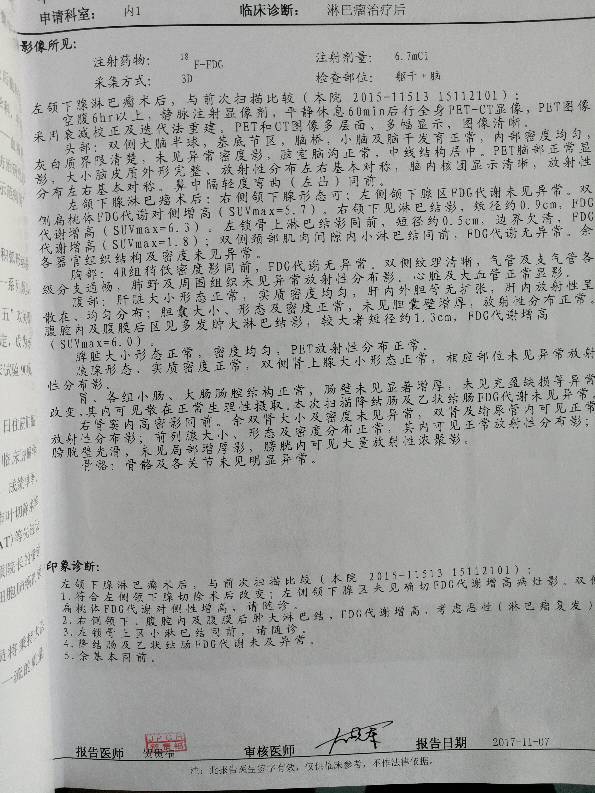 申请科室： 内1 临床诊断： 淋巴瘤治疗后
影像所见：
注射药物： 18F-FDG 注射剂量： 6.7mCi
采集方式： 3D 检查部位： 躯干+脑
左颌下腺淋巴瘤术后，与前次扫描比较（本院 2015-11513 15112101）：
空腹6hr以上，静脉注射显像剂，平静休息60min后行全身PET-CT显像，PET图像
采用衰减校正及迭代法重建。PET和CT图像多层面、多幅显示，图像清晰。
头部：双侧大脑半球、基底节区、脑桥、小脑及脑干发育正常，内部密度均匀，
灰白质界限清楚，未见异常密度影，脑室脑沟正常，中线结构居中。PET脑部正常显
影，大小脑皮质外形完整、放射性分布左右基本对称，脑内核团显示清晰，放射性
分布左右基本对称。鼻中隔轻度弯曲（左凸）同前。
左颌下腺淋巴瘤术后：右侧颌下腺形态可；左侧颌下腺区FDG代谢未见异常。双
侧扁桃体FDG代谢对侧增高（SUVmax=5.7）。右颌下见淋巴结影，短径约0.9cm，FDG
代谢增高（SUVmax=6.3）。左锁骨上淋巴结影同前，短径约0.5cm，边界欠清，FDG
代谢增高（SUVmax=1.8）；双侧颈部肌肉间隙内小淋巴结同前，FDG代谢无异常。余
各器官组织结构及密度未见异常。
胸部：4R组稍低密度影同前，FDG代谢无异常。双侧纹理清晰，气管及支气管各
级分支通畅，肺野及周围组织未见异常放射性分布影。心脏及大血管正常显影。
腹部：肝脏大小形态正常，实质密度均匀，肝内外胆管无扩张，肝内放射性呈
散在、均匀分布；胆囊大小、形态及密度正常，未见胆囊壁增厚，放射性分布正常。
腹腔内及腹膜后区见多发肿大淋巴结影，较大者短径约1.3cm，FDG代谢增高
（SUVmax=6.0）。
脾脏大小形态正常，密度均匀，PET放射性分布正常。
胰腺形态，实质密度正常，双侧肾上腺大小形态正常，相应部位未见异常放射
性分布影。
胃、各组小肠、大肠肠腔结构正常，肠壁未见显著增厚，未见充盈缺损等异常
改变，其内可见散在正常生理性摄取。本次扫描降结肠及乙状结肠FDG代谢未见异常。
右肾实内高密影同前。余双肾大小及密度未见异常，双肾及输尿管内可见正常
放射性分布影；前列腺大小、形态及密度分布正常，其内可见正常放射性分布影；
膀胱壁光滑，未见局部增厚影，膀胱内可见大量放射性浓聚影。
骨骼：骨骼及各关节未见明显异常。
印象诊断：
左颌下腺淋巴瘤术后，与前次扫描比较（本院 2015-11513 15112101）：
1.符合左侧颌下腺切除术后改变；左侧颌下腺区未见确切FDG代谢增高病灶影。双侧
扁桃体FDG代谢对侧性增高，请随诊。
2.右侧颌下、腹腔内及腹膜后肿大淋巴结，FDG代谢增高，考虑恶性（淋巴瘤复发）
3.左锁骨上区小淋巴结同前，请随诊。
4.降结肠及乙状结肠FDG代谢未及异常。
5.余基本同前。
报告医师 审核医师 报告日期 2017-11-07
注：此报告医生签字有效，仅供临床参考，不作法律依据。